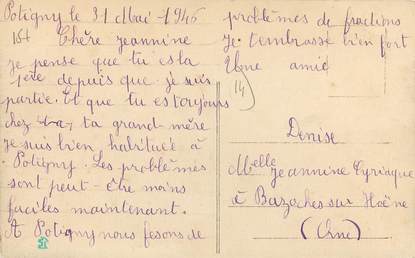 Potigny le 31 Mai 1946
Chère Jeannine
je pense que tu es la
1ère depuis que je suis
partie. Et que tu es toujours
chez ta grand-mère
je suis bien habituée à
Potigny. Les problèmes
sont peut-être moins
faciles maintenant.
A Potigny nous fesons de
problèmes de fractions
Je t'embrasse bien fort
Une amie
14
Denise
Melle Jeannine Cyriaque
à Bazoches sur Hoëne
(Orne)